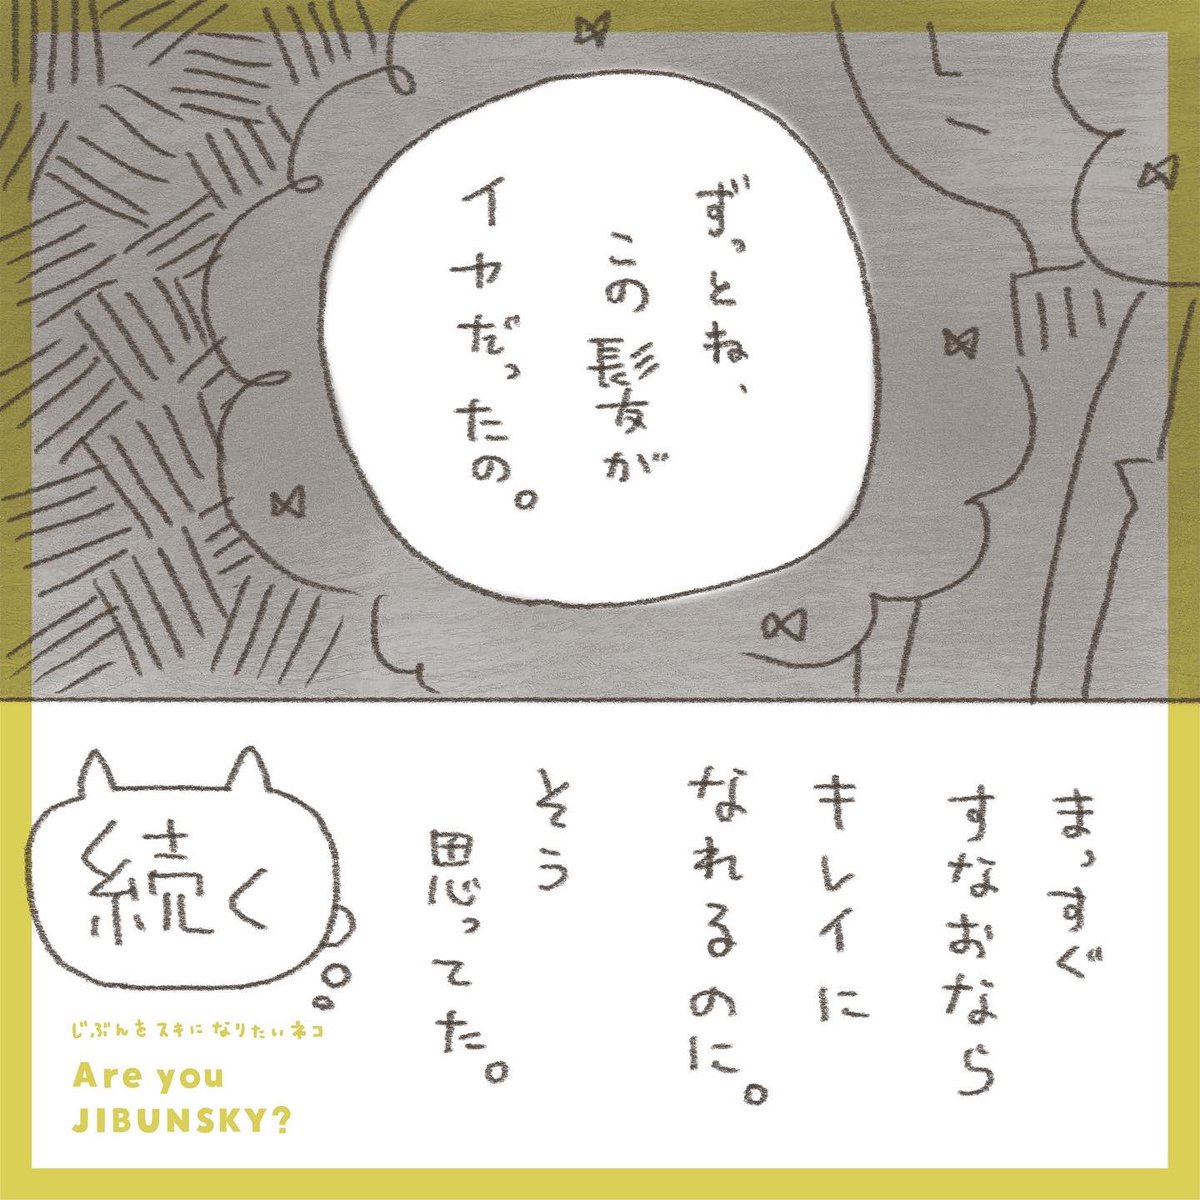 ずっとね、
この髪が
イヤだったの。
まっすぐ
すなおなら
キレイに
なれるのに。
そう
思ってた。
続く
じぶんをスキになりたいネコ
Are you
JIBUNSKY?